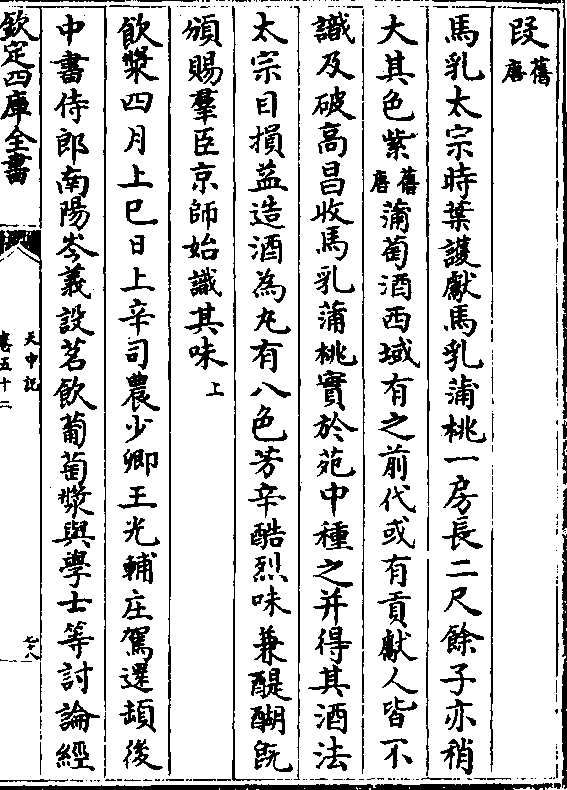 段舊唐
馬乳太宗時葉護獻馬乳蒲桃一房長二尺餘子亦稍
大其色紫舊唐蒲萄酒西域有之前代或有貢獻人皆不
識及破高昌收馬乳蒲桃實於苑中種之并得其酒法
太宗自損益造酒為凡有八色芳辛酷烈味兼醍醐既
頒賜羣臣京師始識其味上
飲漿四月上巳日上幸司農少卿王光輔庄駕還頓後
中書侍郎南陽岑羲設茗飲葡萄漿與學士等討論經
欽定四庫全書
天中記
卷五十二